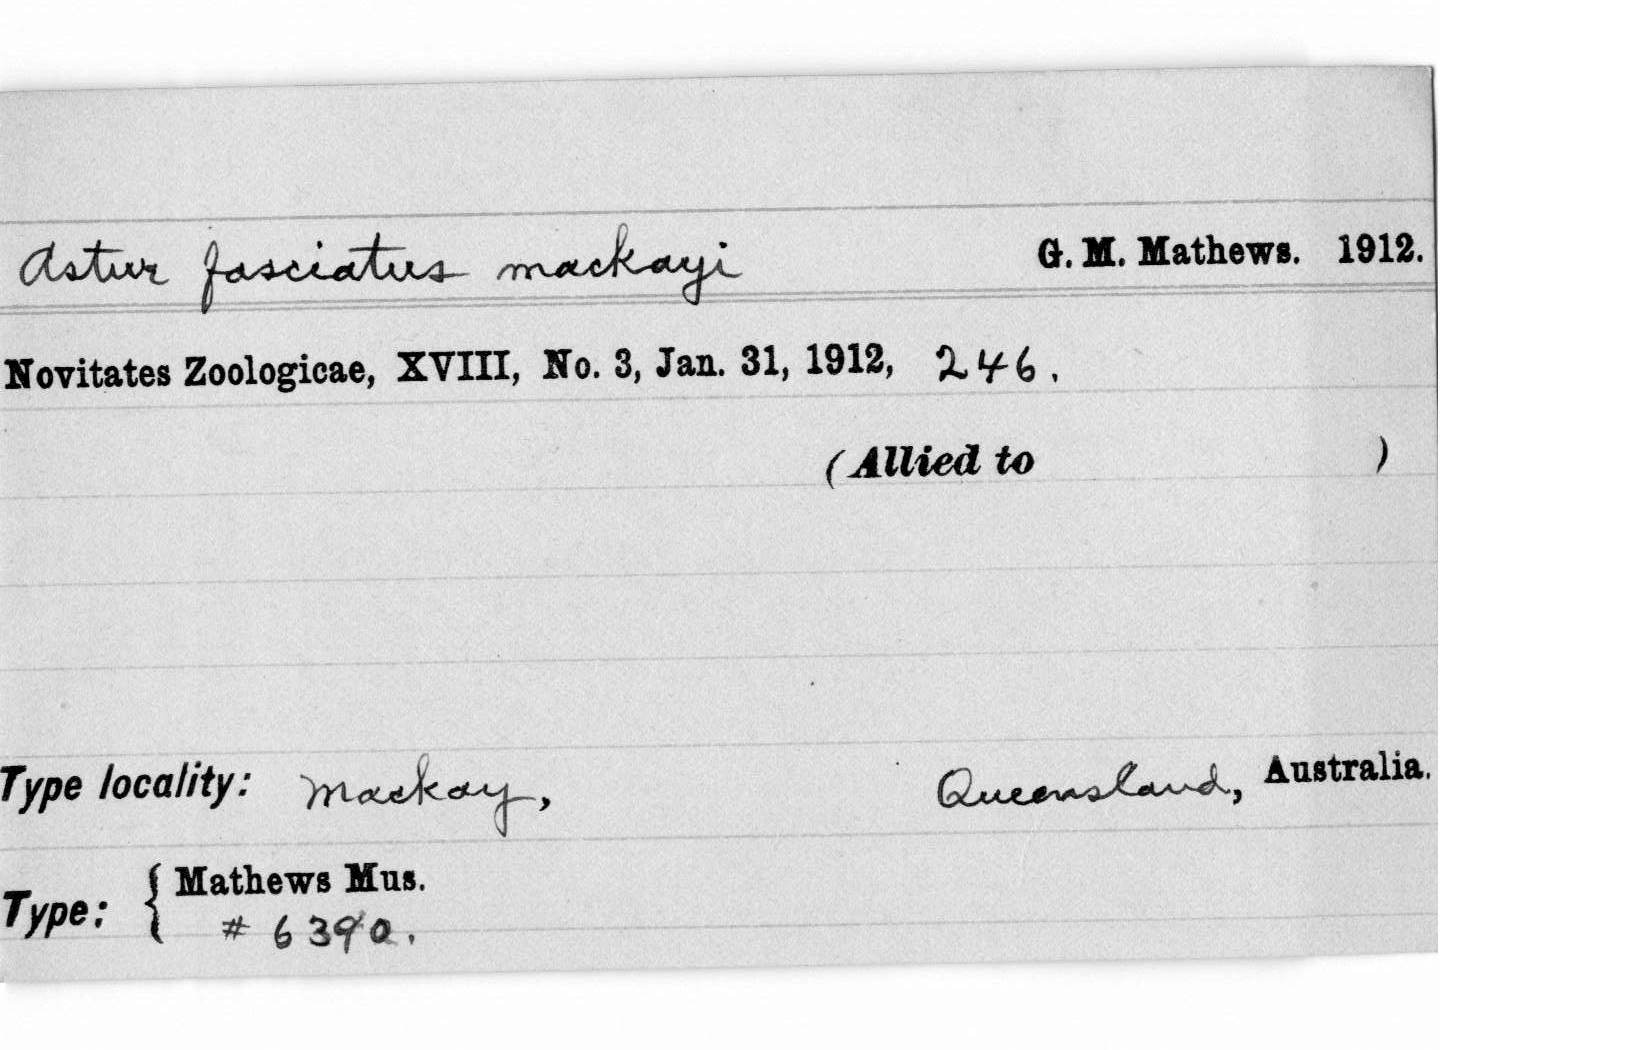 Astur fasciatus mackayi G. M. Mathews. 1912.
Novitates Zoologicae, XVIII, No. 3, Jan. 31, 1912, 246.
(Allied to )
Type locality: Mackay, Queensland, Australia.
Type: { Mathews Mus.
# 6390.